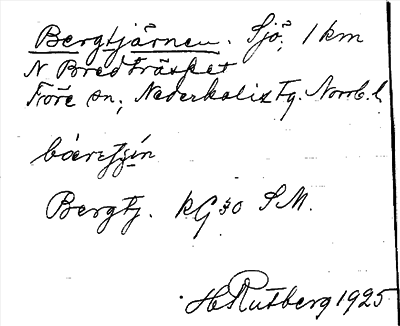 Bergtjärnen. Sjö, 1 km
N Bredträsket
Töre sn, Nederkalix tg. Norrb. l.
Bergtj. KG 30 S.M.
H Rutberg 1925